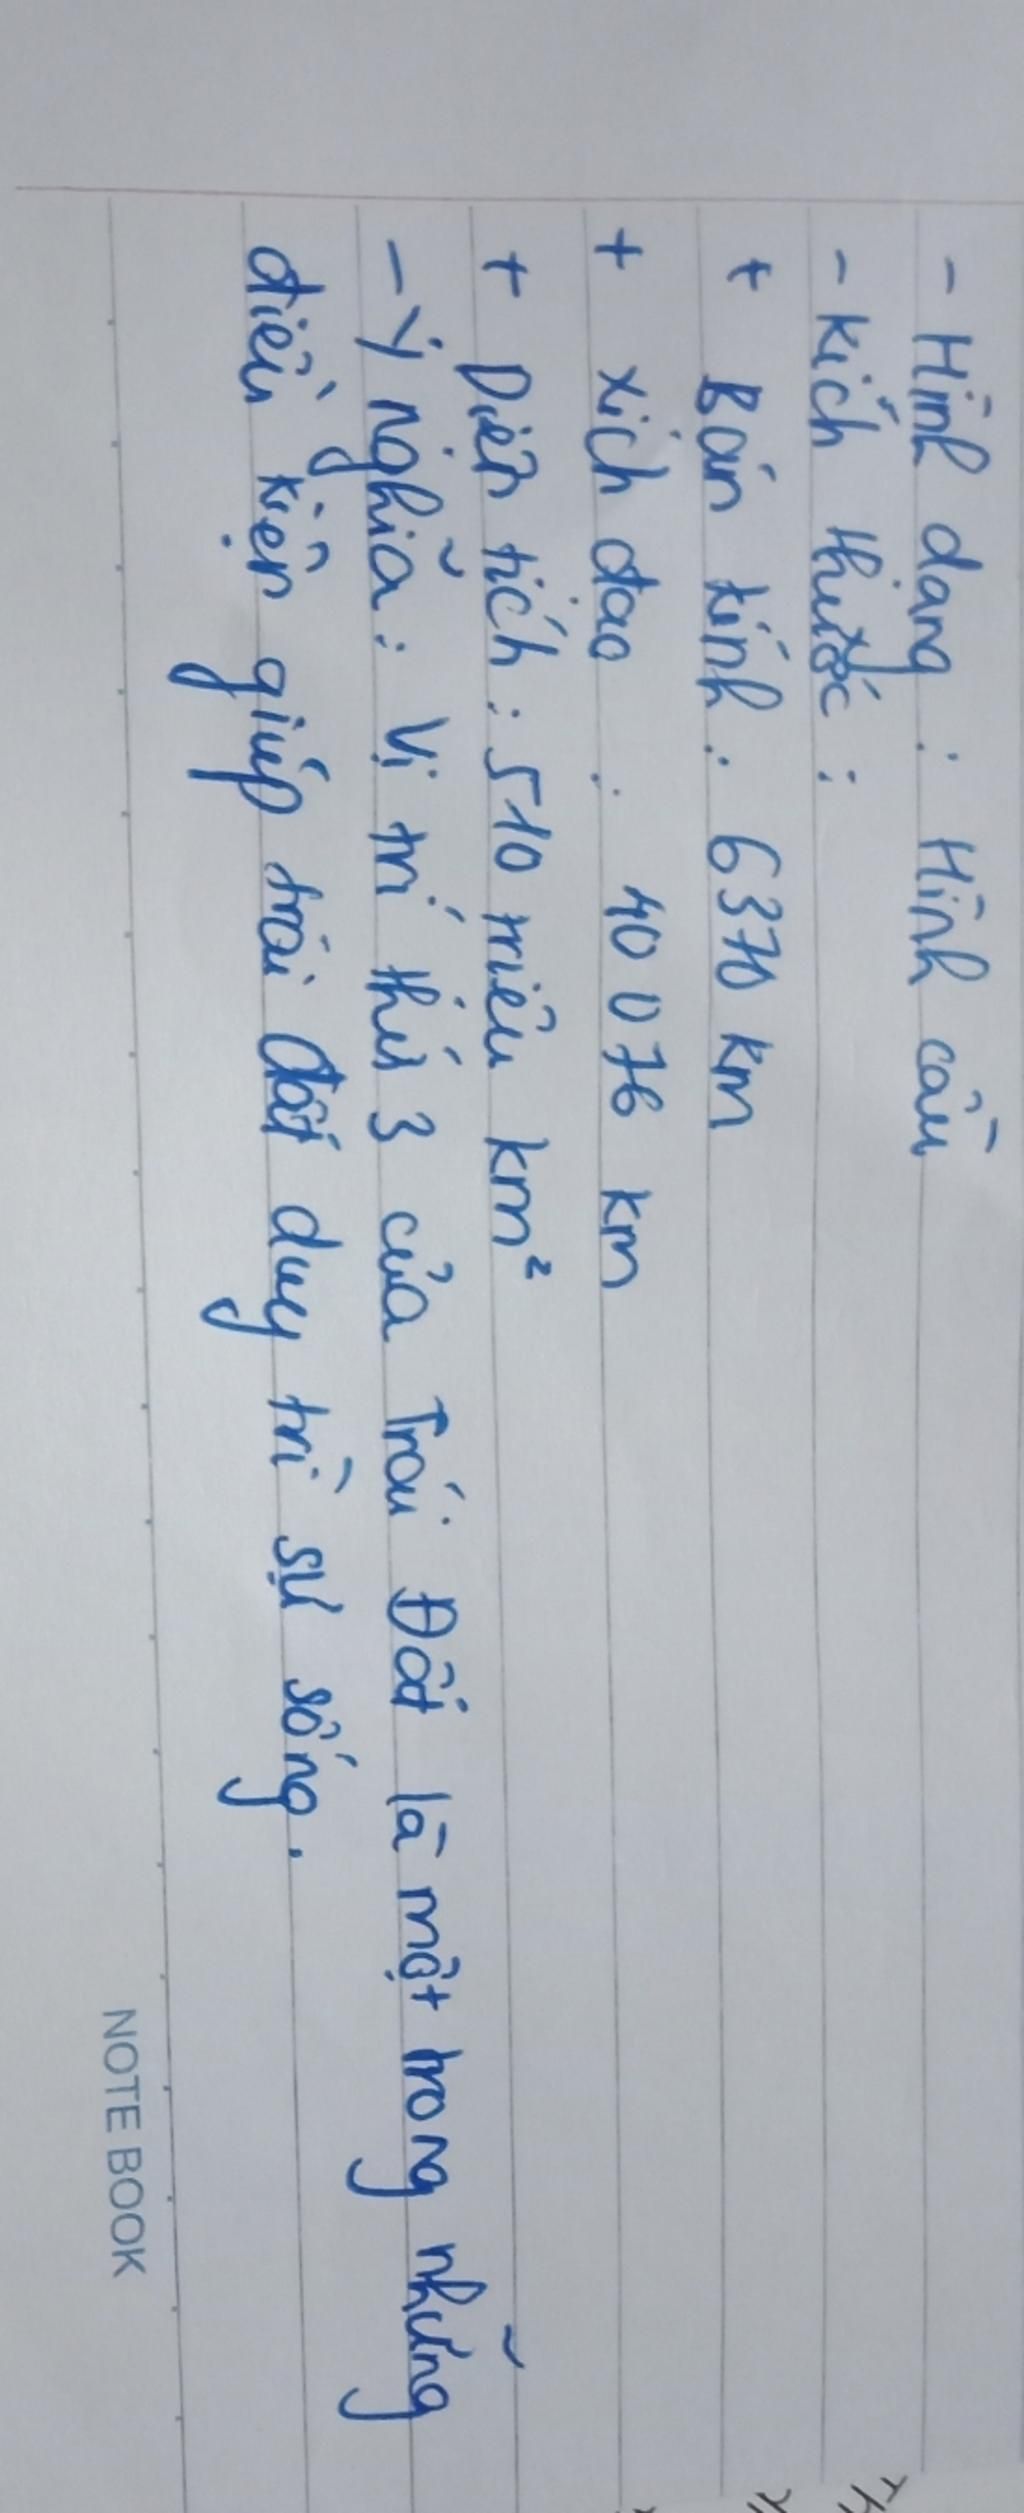 - Hình dạng : Hình cầu
- Kích thước :
+ Bán kính : 6370 km
+ xích đạo : 40 076 km
+ Diện tích : 510 triệu km²
- Ý nghĩa : Vị trí thứ 3 của Trái Đất là một trong những
điều kiện giúp trái đất duy trì sự sống.
NOTE BOOK